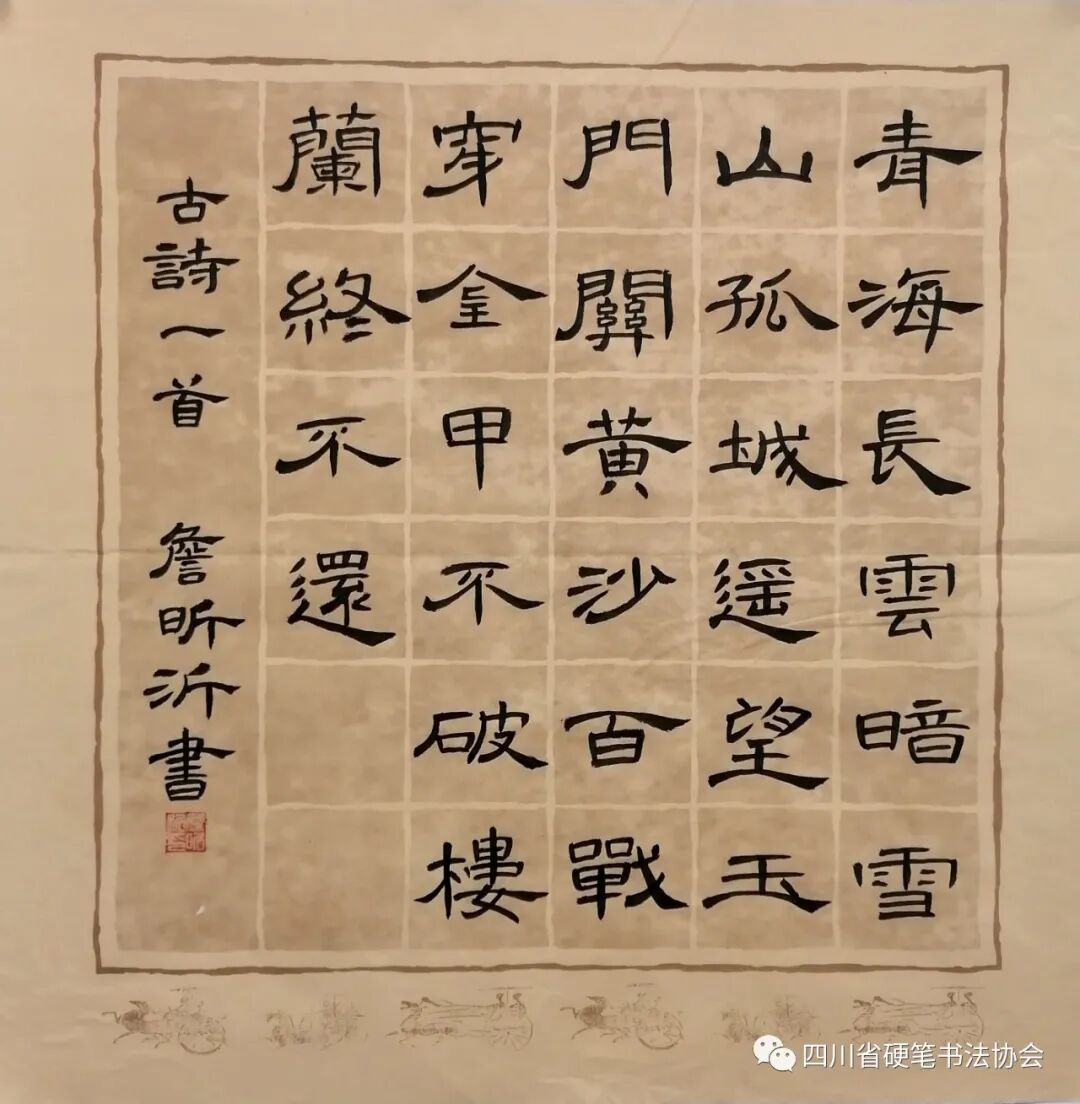 青海長雲暗雪
山孤城遥望玉
門關黄沙百戰
穿金甲不破樓
蘭終不還
古詩一首 詹昕沂書
四川省硬笔书法协会